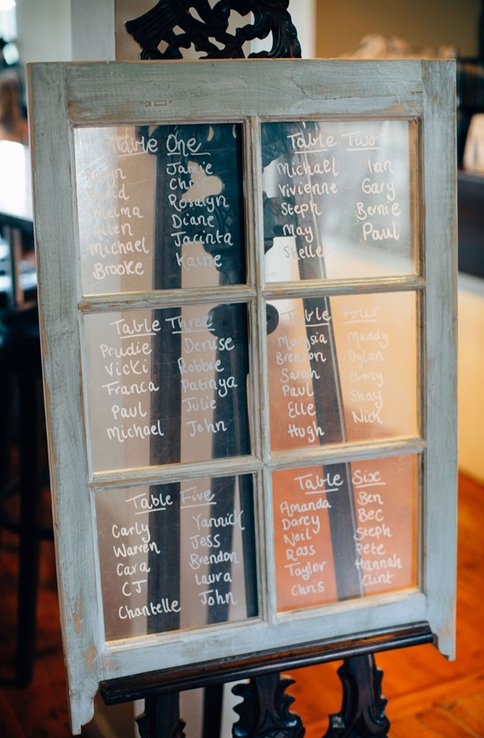 Table One
Jamie
Rosalyn
Diane
Michael Jacinta
Brooke
Table Two
Michael Ian
Vivienne Gary
Steph Bernie
May Paul
Shelley
Table Three
Prudie Denise
Vicki Robbie
Franca Patinya
Paul Julie
Michael John
Table Four
Marysia Maddy
Brendon Dylan
Sarah Ebony
Paul Shay
Elle Nick
Hugh
Table Five
Carly Yannick
Warren Jess
Cara Brendon
CJ Laura
Chantelle John
Table Six
Amanda Ben
Darcy Bec
Neil Steph
Ross Pete
Taylor Hannah
Chris Clint